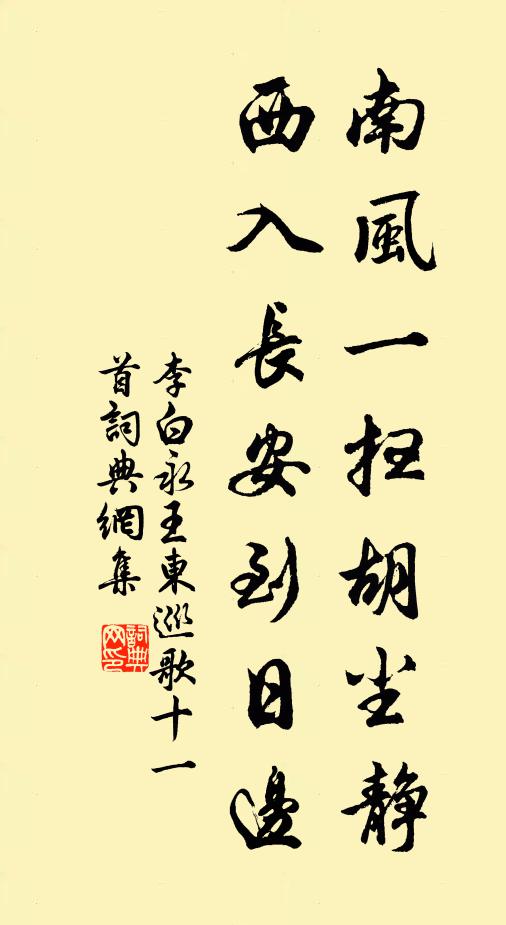 南風一扫胡尘静
西入長安到日邊
李白永王東巡歌十一
首詞典網集
詞典
网印